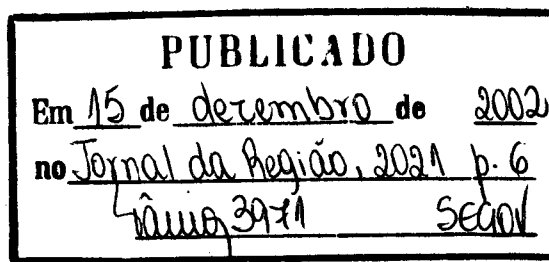 PUBLICADO
Em 15 de dezembro de 2002
no Jornal da Região, 2021 p. 6
Vânia 3971 SEGOV